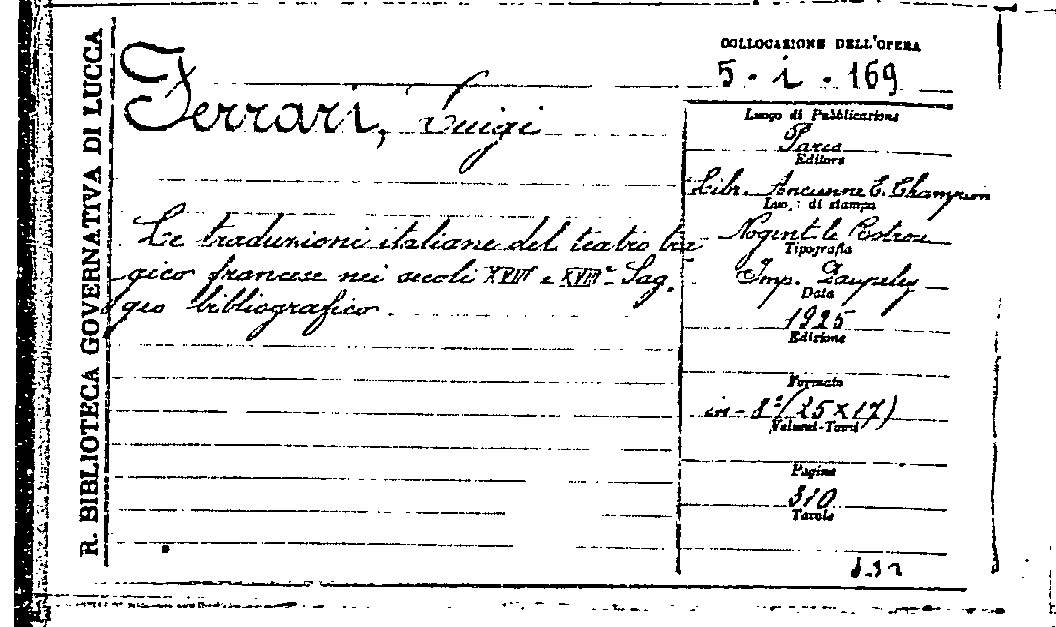 R. BIBLIOTECA GOVERNATIVA DI LUCCA
COLLOCAZIONE DELL'OPERA
5 - i - 169
Ferrari, Luigi
Le traduzioni italiane del teatro tra
gico francese nei secoli XVII° e XVIII°. Sag.
gio bibliografico.
Luogo di Pubblicazione
Paris
Editore
Libr. Ancienne E. Champion
Luogo di stampa
Nogent le Rotrou
Tipografia
Imp. Daupeley
Data
1925
Edizione
Formato
in-8°(25x17)
Volumi-Tomi
Pagine
310
Tavole